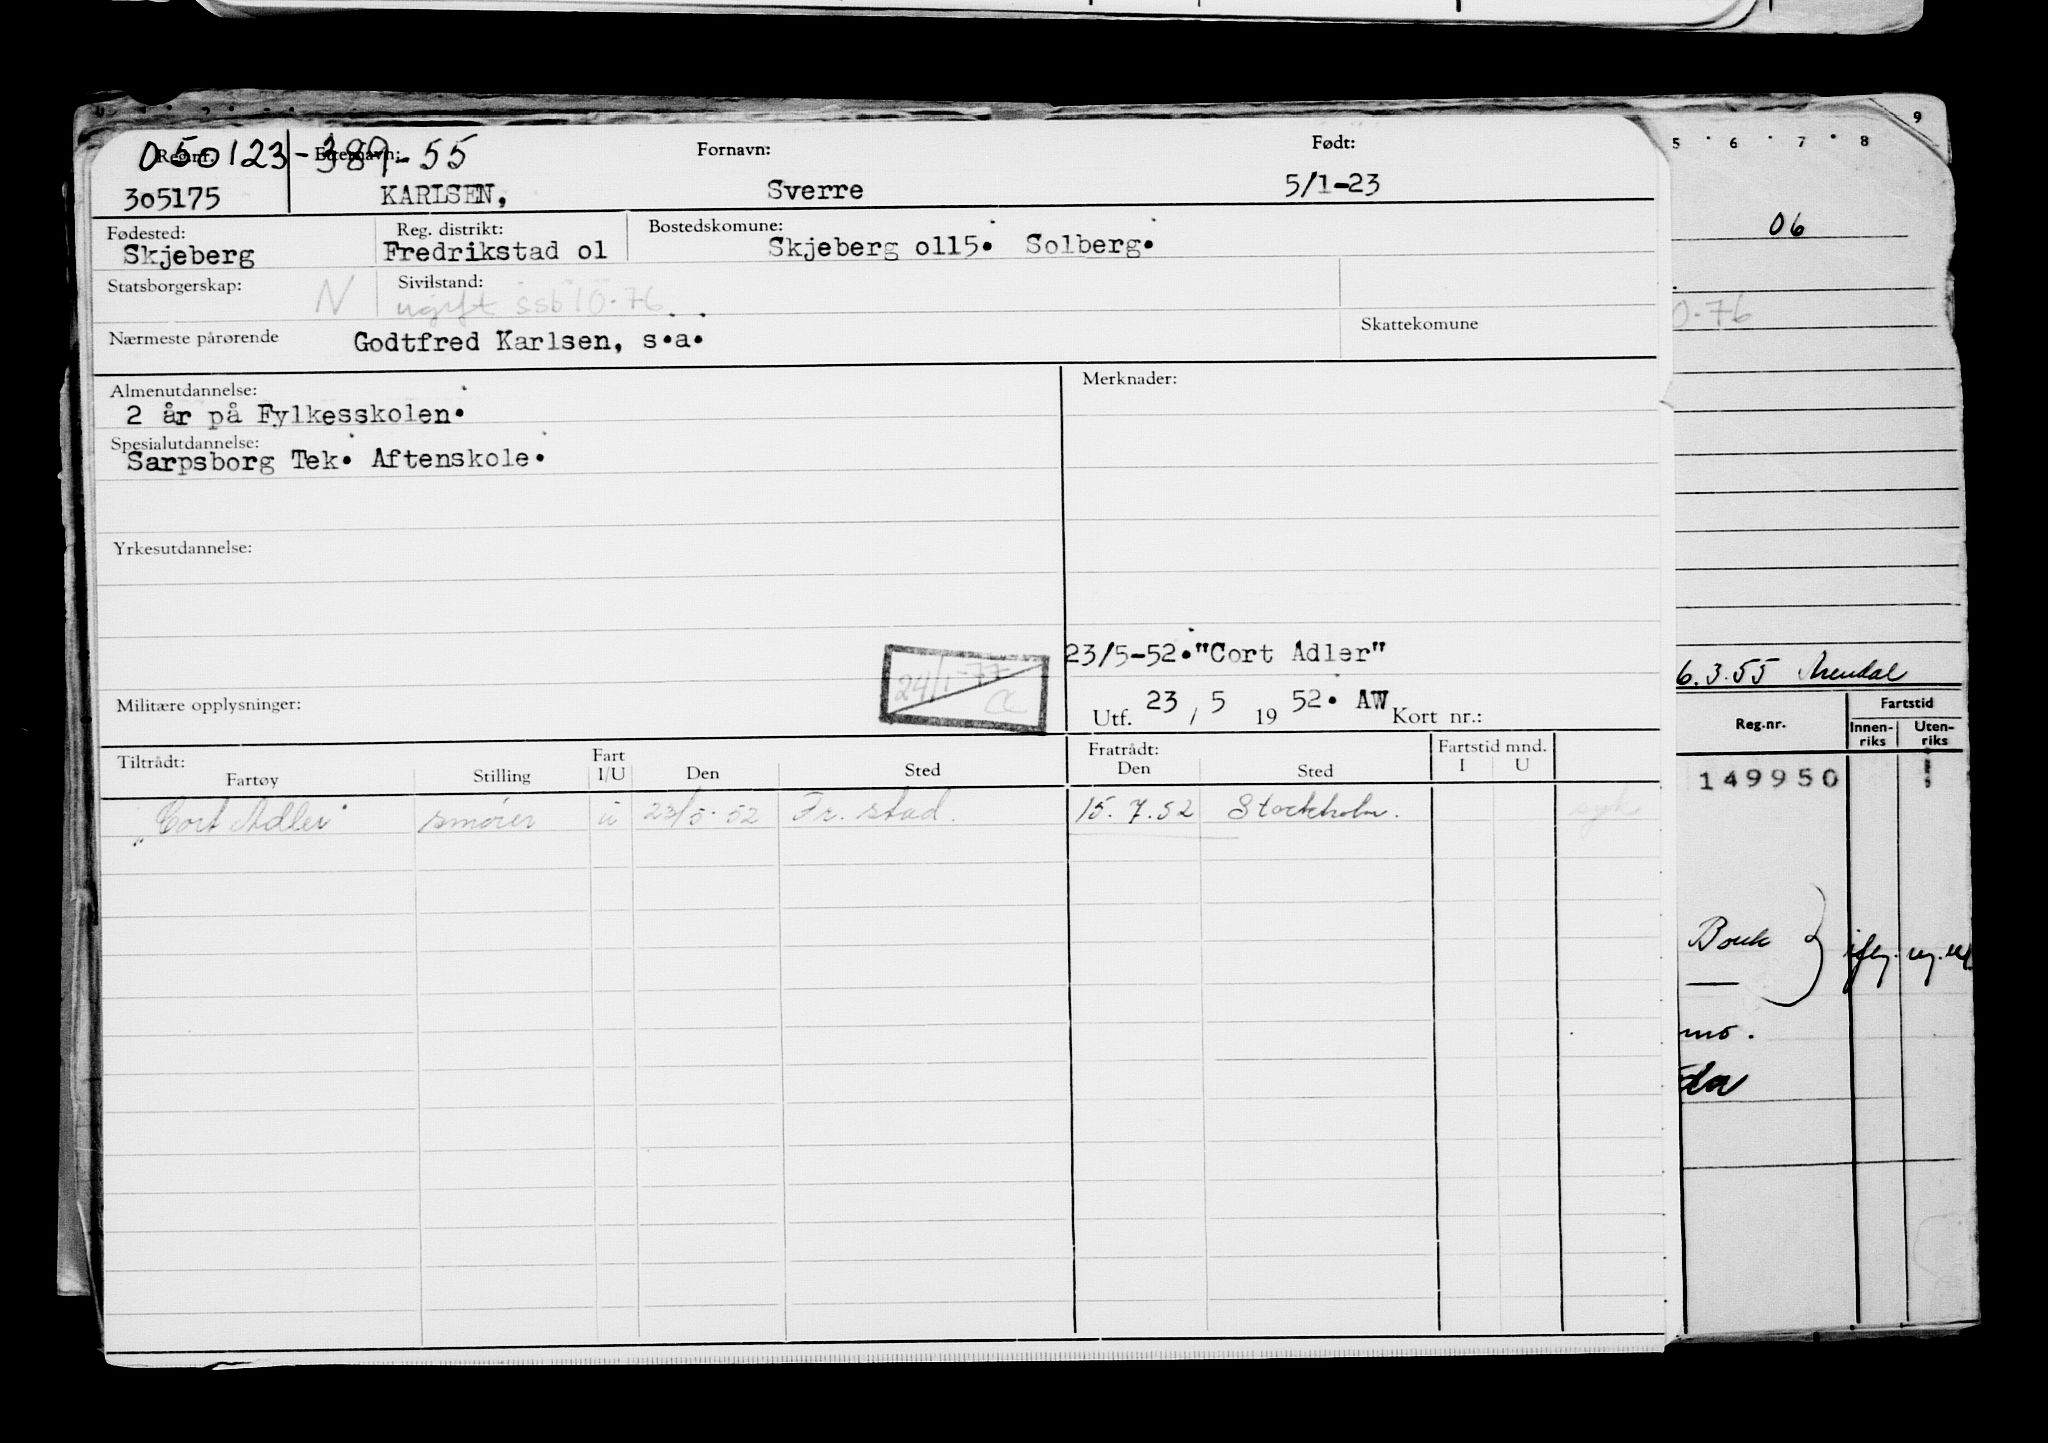 050123-389-55
Reg.nr. Etternavn: Fornavn: Født:
305175 KARLSEN, Sverre 5/1-23
Fødested: Reg. distrikt: Bostedskomune:
Skjeberg Fredrikstad o1 Skjeberg o115. Solberg.
Statsborgerskap: N Sivilstand: ugift ssb 10.76
Nærmeste pårørende Godtfred Karlsen, s.a. Skattekomune
Almenutdannelse: Merknader:
2 år på Fylkesskolen.
Spesialutdannelse:
Sarpsborg Tek. Aftenskole.
Yrkesutdannelse:
23/5-52."Cort Adler"
24/1-77
Militære opplysninger: Utf. 23 / 5 19 52. AW Kort nr.:
Tiltrådt: Fart Fratrådt: Fartstid mnd.
Fartøy Stilling I/U Den Sted Den Sted I U
"Cort Adler" smører u 23/5.52 Fr.stad. 15.7.52 Stockholm. syk
9
5 6 7 8
06
0.76
6.3.55 Arendal
Reg.nr. Fartstid
Innen-riks Uten-riks
149950